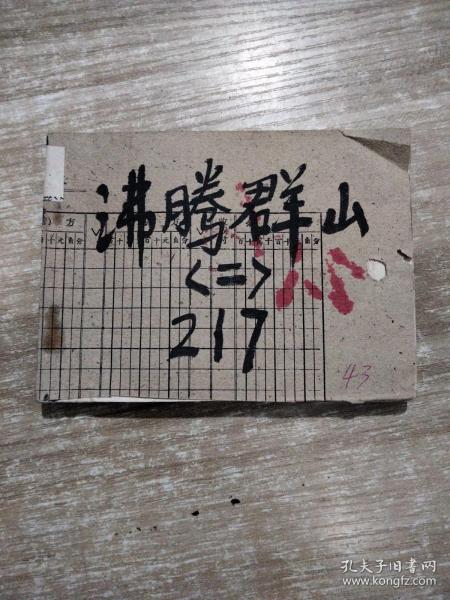 沸腾群山
<二>
217
43
方
千元角分
孔夫子旧书网
www.kongfz.com